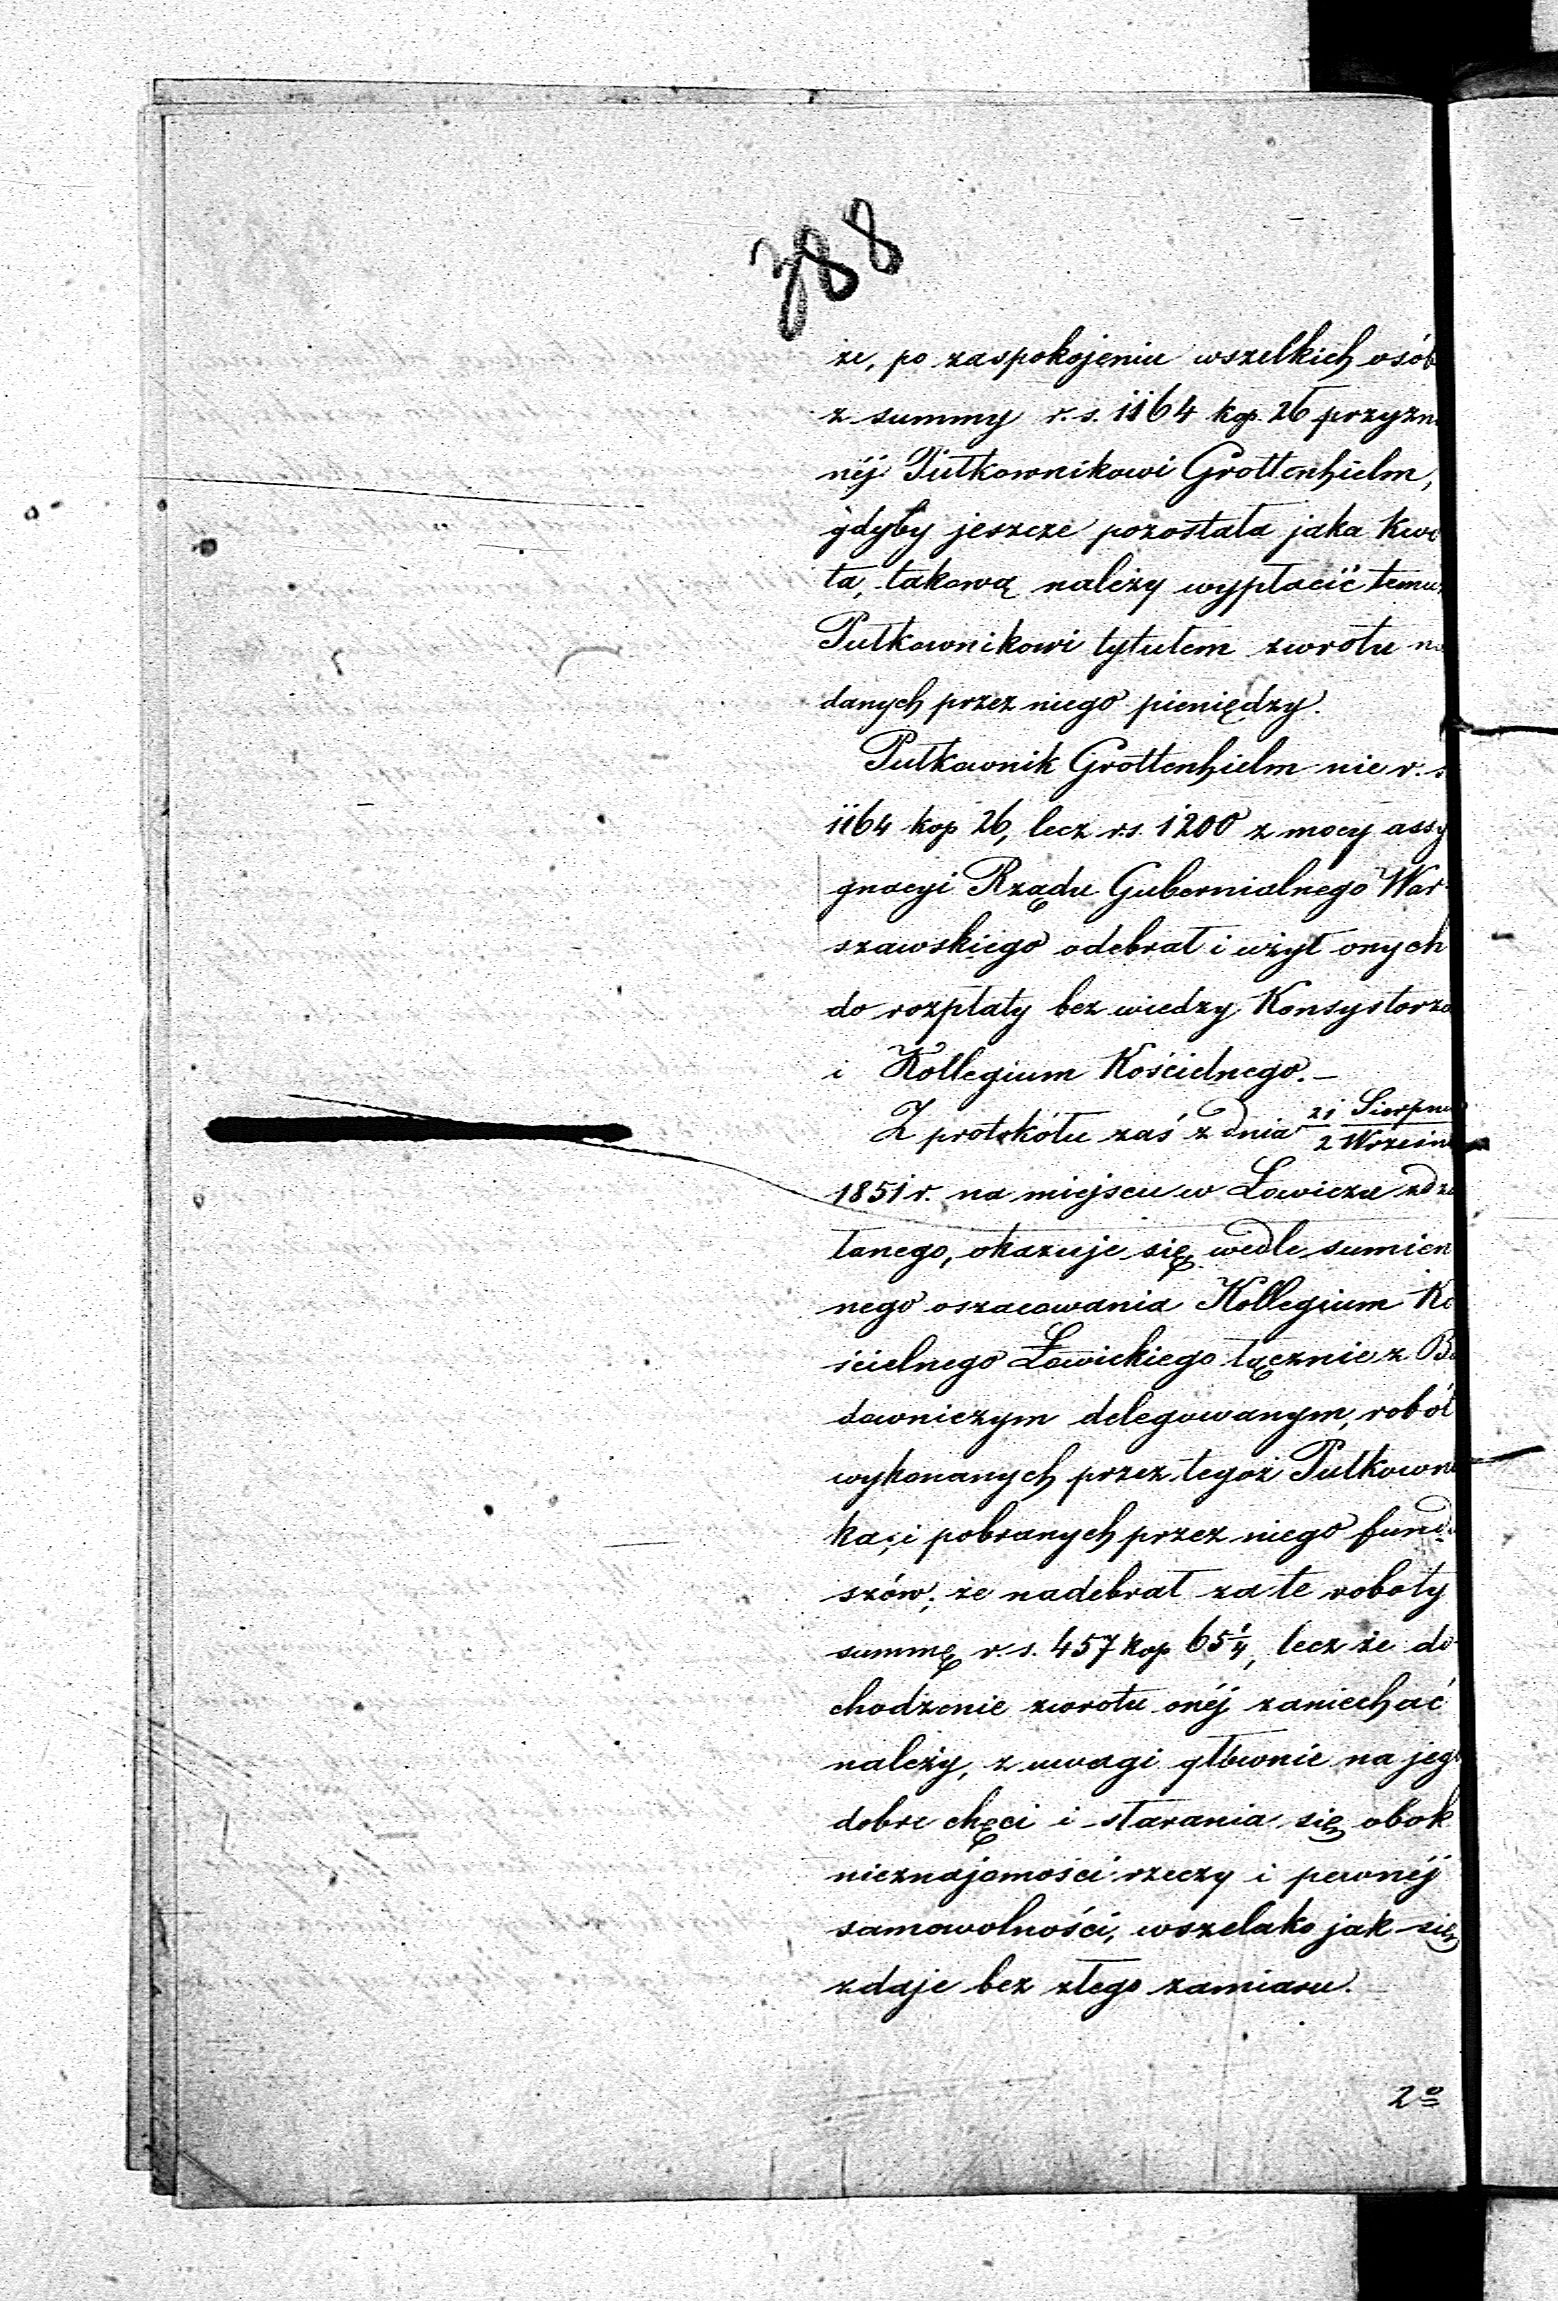 388
że, po zaspokojeniu wszelkich osób
z summy r. s. 1164 kop. 26 przyzna
néj Pułkownikowi Grottenhielm,
gdyby jeszcze pozostała jaka kwo
ta, takową należy wypłacić temuż
Pułkownikowi tytułem zwrotu na
danych przez niego pieniędzy.
Pułkownik Grottenhielm nie r. s
1164 kop 26, lecz r.s. 1200 z mocy assy
gnacyi Rządu Gubernialnego War-
szawskiego odebrał i użył onych
do rozpłaty bez wiedzy Konsystorza
i Kollegium Kościelnego. –
Z protokółu zaś z dnia 21 Sierpnia / 2 Wrześni
1851 r. na miejscu w Łowiczu zdzia
łanego, okazuje się wedle sumien
nego oszacowania Kollegium Ko
ścielnego Łowickiego łącznie z Bu
downiczym delegowanym, robót
wykonanych przez tegoż Pułkowni
ka, i pobranych przez niego fundu
szów; że nadebrał za te roboty
summę r. s. 457 kop 65 1/4, lecz że do-
chodzenie zwrotu onéj zaniechać
należy, z uwagi głównie na jego
dobre chęci i starania się obok
nieznajomości rzeczy i pewnéj
samowolności, wszelako jak się
zdaje bez złego zamiaru.
2o